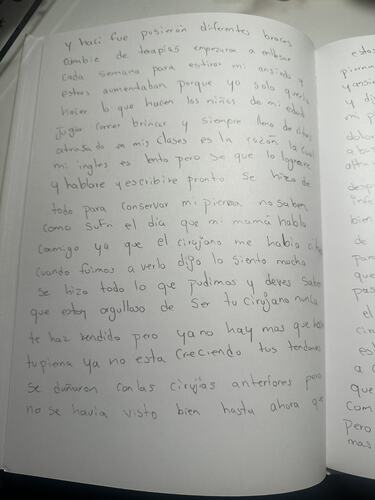 y haci fue pusieron diferentes braces
cambie de terapias empezaron a
cada semana para estirar mi ansieda y
estres aumentaban porque yo solo queria
hacer lo que hacen los niños de mi edad
jugar correr brincar y siempre lleno de citas
atrasado en mis clases es la razon la cual
mi ingles es lento pero se que lo lograre
y hablare y escribire pronto se hizo de
todo para conservar mi pierna no saben
como sufri el dia que mi mamá hablo
conmigo ya que el cirujano me habia
cuando fuimos a verlo dijo lo siento mucho
se hizo todo lo que pudimos y deves saber
que estoy orgulloso de ser tu cirujano nunca
te haz rendido pero ya no hay mas que
tu pierna ya no esta creciendo tus tendones
se dañaron con las cirujias anteriores pero
no se havia visto bien hasta ahora que
estos
y
y di
mi p
dolor
bien
de
que
pas
el
est
a
que
com
pero
mas